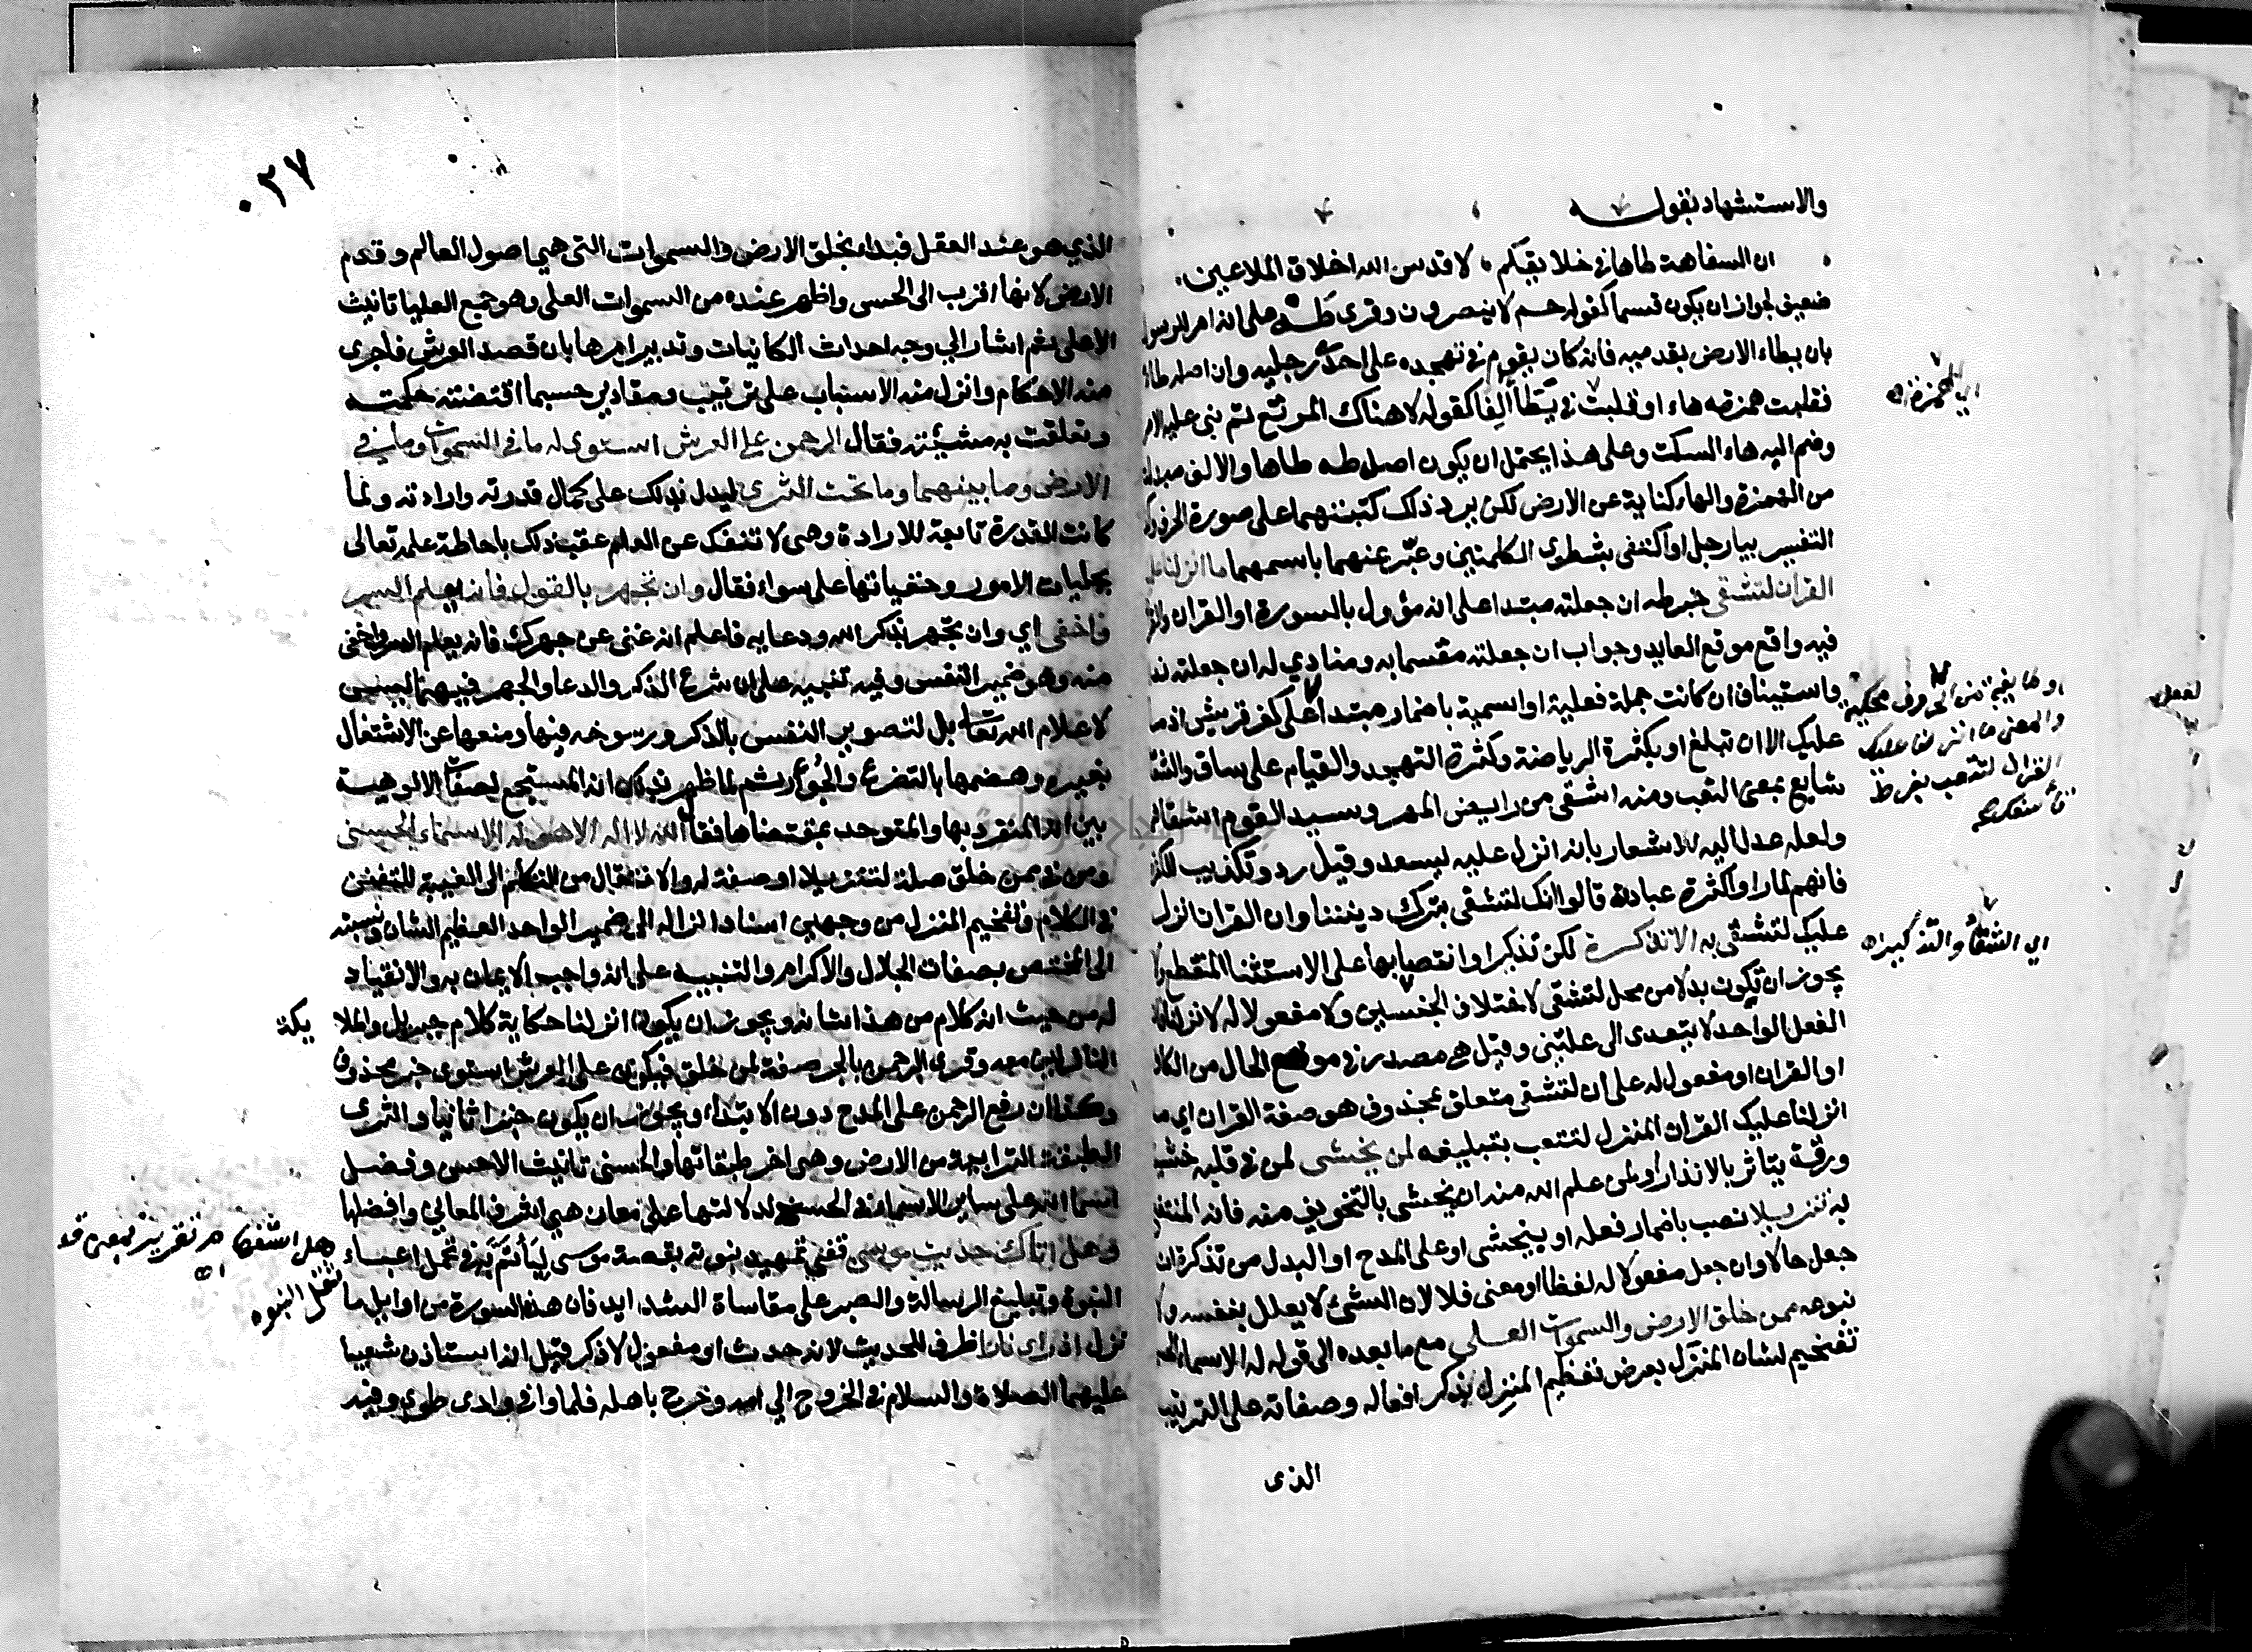 والاستشهاد بقوله
ان السفاهة طاها في خلايقكم لا قدس الله اخلاق الملاعين
ضعيف لجواز ان يكون قسما كقوله حم لا ينصرون وقرى طه على انه امر للرسول
بان يطاء الارض بقدميه فانه كان يقوم في تهجده على احدى رجليه وان اصله طاء
فقلبت همزته هاء او قلبت في يطأ الفا كقوله لا هناك المرتع ثم بنى عليه الامر
وضم اليه هاء السكت وعلى هذا يحتمل ان يكون اصل طه طاها والالف مبدلة
من الهمزة والهاء كناية عن الارض لكن يرد ذلك كتبتهما على صورة الحرف
التفسير بيا رجل او اكتفى بشطرى الكلمتين وعبّر عنهما باسمهما ما انزلنا عليك
القران لتشقى خبر طه ان جعلته مبتدا على انه مؤول بالسورة او القران
فيه واقع موقع العايد وجواب ان جعلته مقسما به ومنادي له ان جعلته ندا
واستيناف ان كانت جملة فعلية او اسمية باضمار مبتدا على كفر قريش اذ ما
عليك الا ان تبلغ او بكثرة الرياضة وكثرة التهجد والقيام على ساق والشقا
شايع بمعنى التعب ومنه اشقى من رايض المهر وسيد القوم اشقاهم
ولعله عدل اليه للاشعار بانه انزل عليه ليسعد وقيل رد وتكذيب للكفرة
فانهم لما راوا كثرة عبادته قالوا انك لتشقى بترك ديننا وان القران انزل
عليك لتشقى به الا تذكرة لكن تذكيرا وانتصابها على الاستثنا المنقطع ولا
يجوز ان تكون بدلا من محل لتشقى لاختلاف الجنسين ولا مفعولا له لانزلنا فان
الفعل الواحد لا يتعدى الى علتين وقيل هي مصدر في موضع الحال من الكاف
او القران او مفعول له على ان لتشقى متعلق بمحذوف هو صفة القران اي ما
انزلنا عليك القران المنزل لتتعب بتبليغه لمن يخشى لمن في قلبه خشية
ورقة يتاثر بالانذار او لمن علم الله منه ان يخشى بالتخويف منه فانه المنتفع
به تنزيلا نصب باضمار فعله او بيخشى او على المدح او البدل من تذكرة ان
جعل حالا وان جعل مفعولا له لفظا او معنى فلا لان الشئ لا يعلل بنفسه ولا
بنوعه ممن خلق الارض والسموات العلى مع ما بعده الى قوله له الاسماء الحسنى
تفخيم لشان المنزل بعرض تعظيم المنزل بذكر افعاله وصفاته على الترتيب
الذى
اي الهمزة
او ما يفيد من الحروف محكية
والمعنى ما انزلنا عليك
القران لتتعب بفرط
تأسفك
اي الشقا والتذكيراه
لفعل
٠٢٧
الذي هو عند العقل فبداء بخلق الارض والسموات التى هي اصول العالم وقدم
الارض لانها اقرب الى الحس واظهر عنده من السموات العلى وهو جمع العليا تانيث
الاعلى ثم اشار الي وجه احداث الكائنات وتدبير امرها بان قصد العرش فاجرى
منه الاحكام وانزل منه الاسباب على ترتيب ومقادير حسبما اقتضته حكمته
وتعلقت به مشيئته فقال الرحمن على العرش استوى له ما في السموات وما في
الارض وما بينهما وما تحت الثرى ليدل بذلك على كمال قدرته وارادته ولما
كانت القدرة تابعة للارادة وهى لا تنفك عن العلم عقب ذلك باحاطة علمه تعالى
بجليات الامور وخفياتها على سواء فقال وان تجهر بالقول فانه يعلم السر
واخفى اي وان تجهر بذكر الله ودعايه فاعلم انه غنى عن جهرك فانه يعلم السر واخفى
منه وهو ضمير النفس وفيه تنبيه على ان شرع الذكر والدعا والجهر فيهما ليس
لاعلام الله تعا بل لتصوير النفس بالذكر ورسوخه فيها ومنعها عن الاشتغال
بغيره وهضمها بالتضرع والجؤار ثم لما ظهر بذلك انه المستجمع لصفات الالوهية
بين انه المتفرد بها والمتوحد بمقتضاها فقال الله لا اله الا هو له الاسماء الحسنى
ومن في ممن خلق صلة لتنزيلا او صفة له والانتقال من التكلم الى الغيبة للتفنن
في الكلام وتفخيم المنزل من وجهين اسناد انزاله الى ضمير الواحد العظيم الشان ونسبته
الى المختص بصفات الجلال والاكرام والتنبيه على انه واجب الايمان به والانقياد
له من حيث انه كلام من هذا شانه ويجوز ان يكون انزلنا حكاية كلام جبريل والملا يكة
النازلين معه وقرى الرحمن بالجر صفة لمن خلق فيكون على العرش استوى خبر محذوف
وكذا ان رفع الرحمن على المدح دون الابتداء ويجوز ان يكون خبرا ثانيا والثرى
الطبقة الترابية من الارض وهى اخر طبقاتها والحسنى تانيث الاحسن وفضل
اسما الله على ساير الاسما في الحسن لدلالتها على معان هي اشرف المعاني وافضلها
وهل اتاك حديث موسى قفى تمهيد نبوته بقصة موسى ليأتم به في تحمل اعباء
النبوة وتبليغ الرسالة والصبر على مقاساة الشدايد فان هذه السورة من اوايل ما
نزل اذ راى نارا ظرف للحديث لانه حدث او مفعول لاذكر قيل انه استاذن شعيبا
عليهما الصلاة والسلام في الخروج الي امه وخرج باهله فلما وافى وادى طوي وفيه
هل استفهام تقرير بمعنى قد
ثقل النبوه